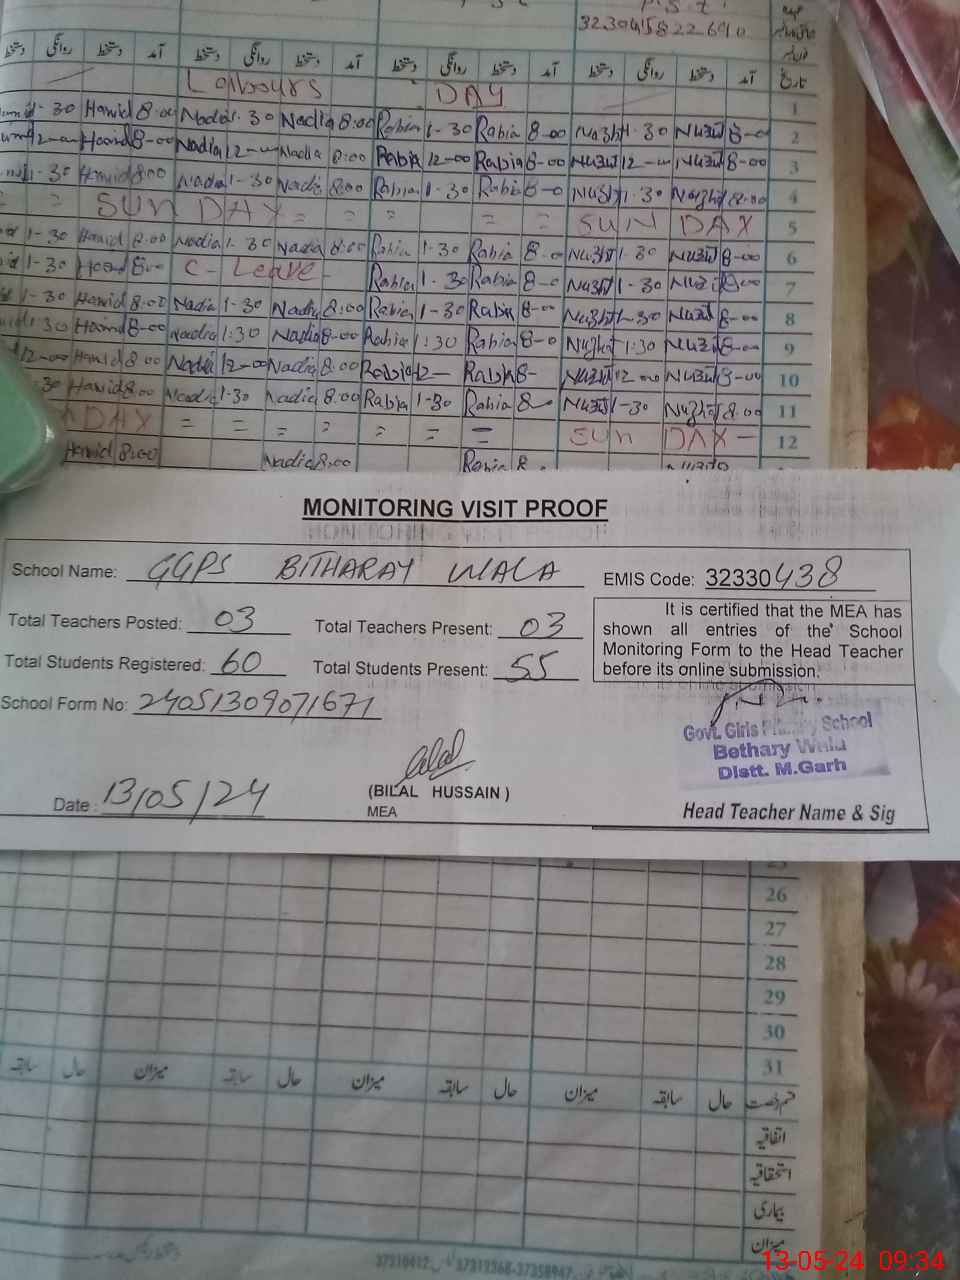 P.S.T.
323045822640
دستخط روانگی دستخط آمد دستخط روانگی دستخط آمد دستخط روانگی دستخط آمد دستخط روانگی دستخط آمد تاریخ
Labours DAY 1
1-30 Hamid 8:00 Nadia 1-30 Nadia 8:00 Rabia 1-30 Rabia 8-00 Nuzht 1-30 Nuzht 8-00 2
12-00 Hamid 8-00 Nadia 12-00 Nadia 8:00 Rabia 12-00 Rabia 8-00 Nuzht 12-00 Nuzht 8-00 3
1-30 Hamid 8:00 Nadia 1-30 Nadia 8:00 Rabia 1-30 Rabia 8-0 Nuzht 1-30 Nuzht 8:00 4
= = SUN DAY = = = = = SUN DAY 5
1-30 Hamid 8:00 Nadia 1-30 Nadia 8:00 Rabia 1-30 Rabia 8-00 Nuzht 1-30 Nuzht 8-00 6
1-30 Hamid 8:00 C-Leave- Rabia 1-30 Rabia 8-0 Nuzht 1-30 Nuzht 8:00 7
1-30 Hamid 8:00 Nadia 1-30 Nadia 8:00 Rabia 1-30 Rabia 8-00 Nuzht 1-30 Nuzht 8-00 8
1:30 Hamid 8-00 Nadia 1:30 Nadia 8-00 Rabia 1:30 Rabia 8-0 Nuzht 1:30 Nuzht 8-00 9
12-00 Hamid 8:00 Nadia 12-00 Nadia 8:00 Rabia 12- Rabia 8- Nuzht 12-00 Nuzht 8-00 10
30 Hamid 8:00 Nadia 1-30 Nadia 8:00 Rabia 1-30 Rabia 8- Nuzht 1-30 Nuzht 8:00 11
DAY = = = = = = SUN DAY - 12
Hamid 8:00 Nadia 8:00 Rabia 8
MONITORING VISIT PROOF
School Name: GGPS BITHARAY WALA EMIS Code: 32330438
Total Teachers Posted: 03 Total Teachers Present: 03
Total Students Registered: 60 Total Students Present: 55
School Form No: 24051309071671
It is certified that the MEA has
shown all entries of the School
Monitoring Form to the Head Teacher
before its online submission.
Govt. Girls Primary School
Bethary Wala
Distt. M.Garh
Date: 13/05/24
(BILAL HUSSAIN)
MEA
Head Teacher Name & Sig
25
26
27
28
29
30
31
سابقہ حال میزان سابقہ حال میزان سابقہ حال میزان سابقہ حال قسم رخصت
اتفاقیہ
استحقاقیہ
بیماری
میزان
13-05-24 09:34